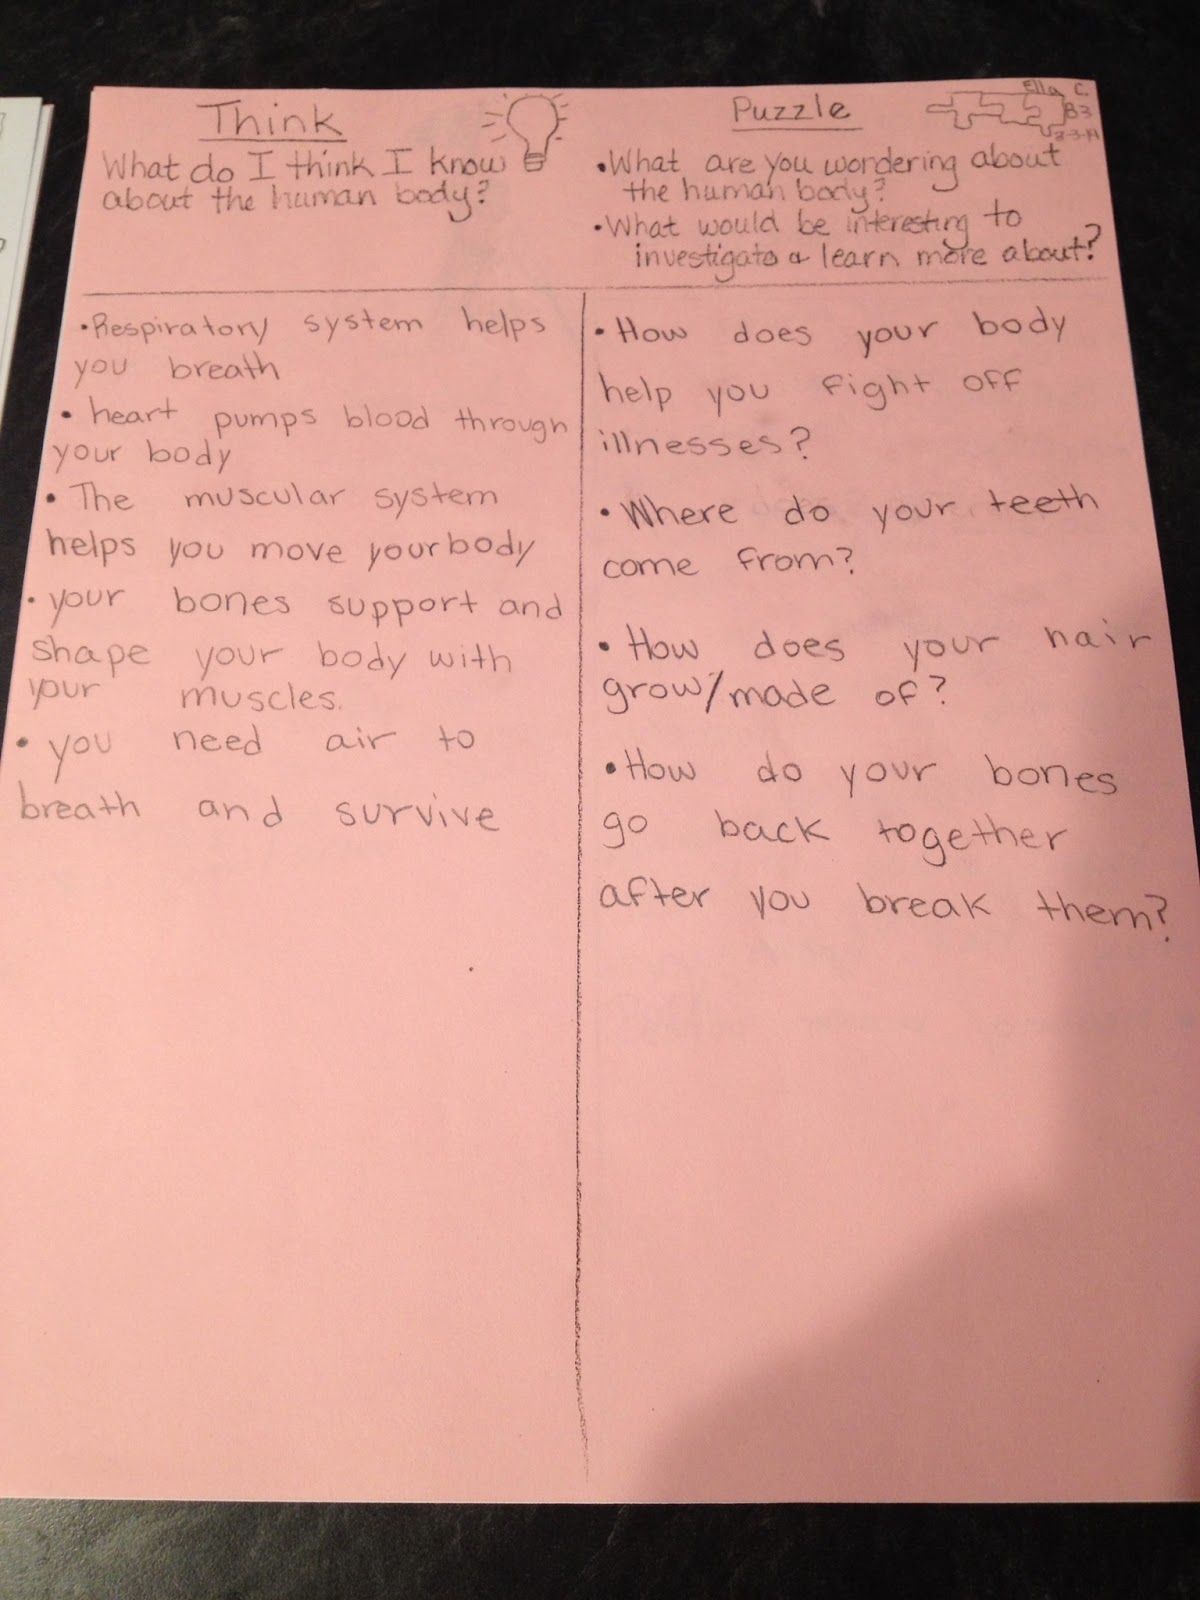 Think
What do I think I know
about the human body?
• Respiratory system helps
you breath
• heart pumps blood through
your body
• The muscular system
helps you move your body
• your bones support and
shape your body with
your muscles.
• you need air to
breath and survive
Puzzle
Ella C.
B3
2-3-14
• What are you wordering about
the human body?
• What would be interesting to
investigate & learn more about?
• How does your body
help you fight off
illnesses?
• Where do your teeth
come from?
• How does your hair
grow/made of?
• How do your bones
go back together
after you break them?